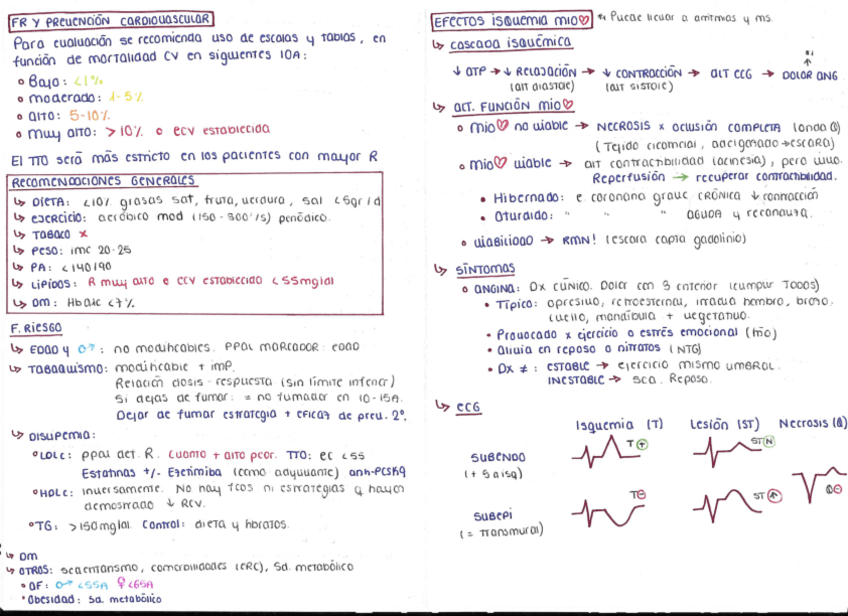 FR Y PREVENCIÓN CARDIOVASCULAR
Para evaluación se recomienda uso de escalas y tablas, en
función de mortalidad CV en siguientes 10A:
• Bajo: <1%
• moderado: 1-5%
• Alto: 5-10%
• muy alto: >10% o ECV establecida
El TTO será más estricto en los pacientes con mayor R
RECOMENDACIONES GENERALES
↳ DIETA: <10% grasas sat, fruta, verdura, sal <5gr/d
↳ EJERCICIO: aeróbico mod (150-300'/s) periódico.
↳ TABACO x
↳ PESO: imc 20-25
↳ PA: <140/90
↳ LÍPIDOS: R muy alto e ECV establecida <55mg/dl
↳ DM: HbA1c <7%
F. RIESGO
↳ EDAD y ♂: no modificables. PPal marcador: edad
↳ TABAQUISMO: modificable + imp.
Relación dosis-respuesta (sin límite inferior)
Si dejas de fumar: = no fumador en 10-15A.
Dejar de fumar estrategia + eficaz de prev. 2º.
↳ DISLIPEMIA:
• LDLc: ppal act. R. Cuanto + alto peor. TTO: EC <55
Estatinas +/- Ezetimiba (como adyuvante) anti-PCSK9
• HDLc: inversamente. No hay fcos ni estrategias q hayan
demostrado ↓ RCV.
• TG: >150mg/dl. Control: dieta y fibratos.
↳ DM
↳ OTROS: sedentarismo, comorbilidades (ERC), Sd. metabólico
• AF: ♂ <55A ♀ <65A
• Obesidad: Sd. metabólico
EFECTOS ISQUEMIA MIO♡ * Puede llevar a arritmias y ms.
↳ CASCADA ISQUÉMICA
↓ ATP → ↓ RELAJACIÓN → ↓ CONTRACCIÓN → ALT ECG → DOLOR ANG
(alt diástole) (alt sístole)
↳ ALT. FUNCIÓN MIO♡
• MIO♡ no viable → NECROSIS x oclusión completa (onda Q)
(Tejido cicatricial, adelgazado → escara)
• MIO♡ viable → alt contractibilidad (acinesia), pero vivo.
Reperfusión → recuperar contractibilidad.
• Hibernado: e. coronaria grave CRÓNICA ↓ contracción
• Aturdido: " " " AGUDA y reanuda.
• VIABILIDAD → RMN! (escara capta gadolinio)
↳ SÍNTOMAS
• ANGINA: Dx CLÍNICO. Dolor con 3 criterios (cumplir TODOS)
• Típico: opresivo, retroesternal, irradia hombro, brazo,
cuello, mandíbula + vegetativo.
• Provocado x ejercicio o estrés emocional (frío)
• Alivia en reposo o nitratos (NTG)
• Dx ≠: ESTABLE → ejercicio mismo umbral.
INESTABLE → SCA. Reposo.
↳ ECG
Isquemia (T) Lesión (ST) Necrosis (Q)
SUBENDO
T+
ST
(+ Sa isq)
Q-
SUBEPI
T-
ST↑
(= Transmural)